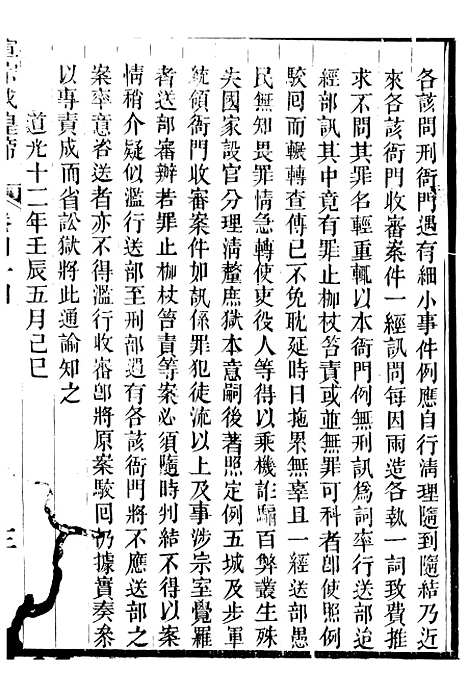 各該問刑衙門遇有細小事件例應自行清理隨到隨結乃近
來各該衙門收審案件一經訊問每因兩造各執一詞致費推
求不問其罪名輕重輒以本衙門例無刑訊爲詞率行送部迨
經部訊其中竟有罪止枷杖笞責或並無罪可科者卽使照例
駮回而輾轉查傳已不免耽延時日拖累無辜且一經送部愚
民無知畏罪情急轉使吏役人等得以乘機詐騙百弊叢生殊
失國家設官分理清釐庶獄本意嗣後著照定例五城及步軍
統領衙門收審案件如訊係罪犯徒流以上及事涉宗室覺羅
者送部審辦若罪止枷杖笞責等案必須隨時判結不得以案
情稍介疑似濫行送部至刑部遇有各該衙門將不應送部之
案率意咨送者亦不得濫行收審卽將原案駮回仍據實奏叅
以專責成而省訟獄將此通諭知之
道光十二年壬辰五月己巳
宣宗成皇帝